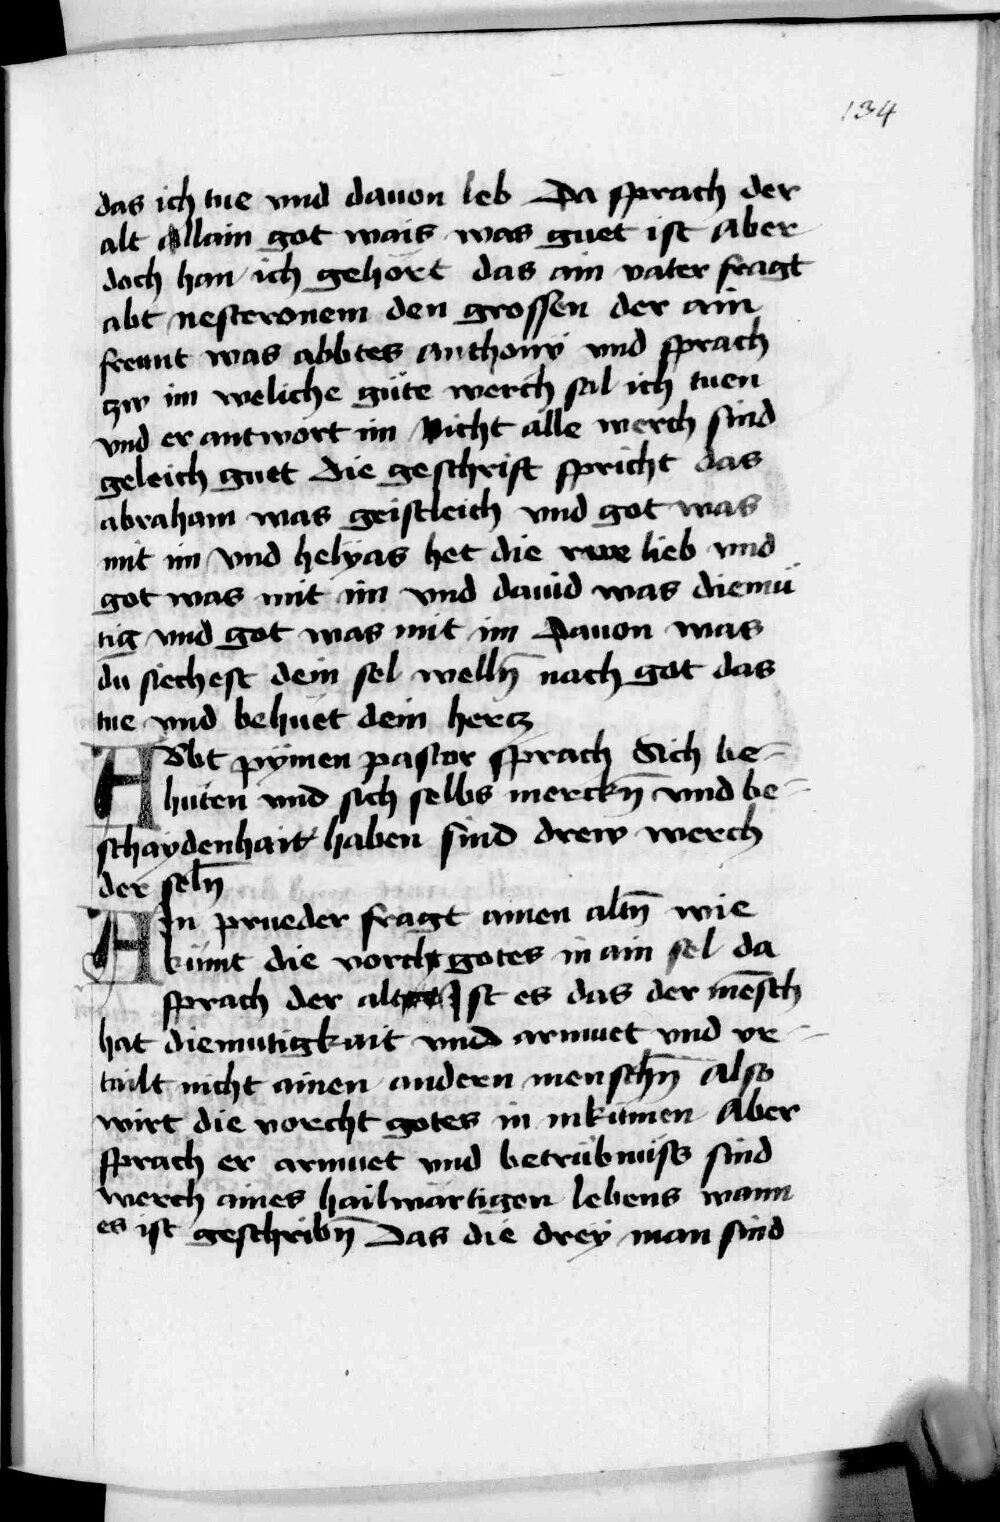 134
das ich tue vnd dauon leb Da sprach der
alt Allain got wais was guet ist Aber
doch han ich gehort das ain vater fragt
abt nesteronem den grossen der ain
freunt was abbtes anthony vnd sprach
tzw im weliche güte werch sal ich tuen
vnd er antwort im Nicht alle werch sind
geleich guet Die geschrift spricht das
abraham was geistleich vnd got was
mit im Vnd helyas het die rwe lieb vnd
got was mit im vnd dauid was diemü
tig vnd got was mit im Dauon was
du siechest dein sel welln̄ nach got das
tue vnd behüet dein hertz
Abbt pymen pastor sprach Sich be-
huten vnd sich selbs merckn̄ vnd be-
schaydenhait haben sind drew werch
der seln̄
Ain prueder fragt ainen altn̄ wie
kümt die vorcht gotes in ain sel da
sprach der alt Ist es das der mēsch
hat diemutigkait vnd armuet vnd vr-
tailt nicht ainen andern menschn̄ Also
wirt die vorcht gotes in in kümen Aber
sprach er armuet vnd betrübnüss sind
werch aines hailwärtigen lebens wann
es ist geschribn̄ Das die drey man sind